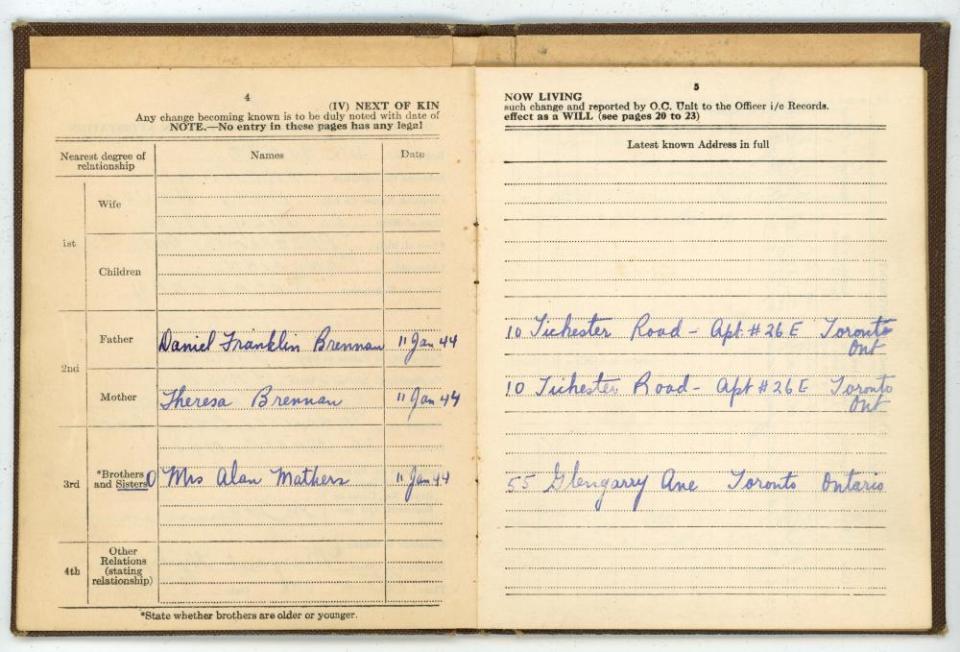 4
(IV) NEXT OF KIN
Any change becoming known is to be duly noted with date of
NOTE.—No entry in these pages has any legal
Nearest degree of relationship
Names
Date
1st
Wife
Children
2nd
Father
Daniel Franklin Brennan 11 Jan 44
Mother
Theresa Brennan 11 Jan 44
3rd
*Brothers and Sisters
O Mrs Alan Mathers 11 Jan 44
4th
Other Relations (stating relationship)
*State whether brothers are older or younger.
5
NOW LIVING
such change and reported by O.C. Unit to the Officer i/c Records.
effect as a WILL (see pages 20 to 23)
Latest known Address in full
10 Tichester Road - Apt # 26 E Toronto
Ont
10 Tichester Road - Apt # 26 E Toronto
Ont
55 Glengarry Ave Toronto Ontario